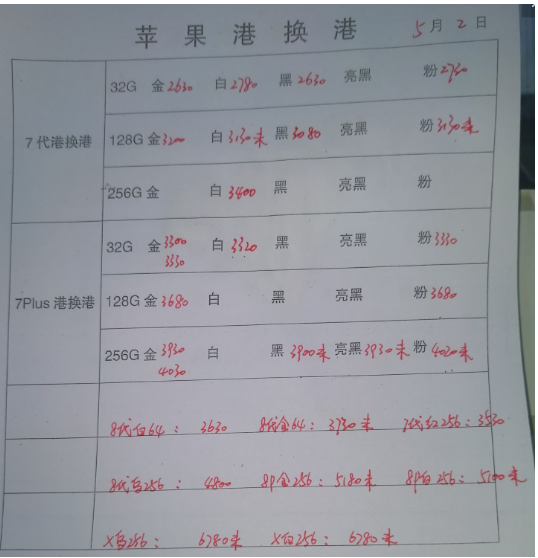 苹果港换港 5月2日
32G 金2630 白2780 黑2630 亮黑 粉2730
7代港换港 128G 金3200 白3130未 黑3080 亮黑 粉3130未
256G 金 白3400 黑 亮黑 粉
32G 金3300 白3320 黑 亮黑 粉3330
3330
7Plus港换港 128G 金3680 白 黑 亮黑 粉3680
256G 金3930 白 黑3900未 亮黑3930未 粉4020未
4030
8代白64: 3630 8代金64: 3730未 7代红256: 3530
8代白256: 4800 8P金256: 5180未 8P白256: 5100未
X白256: 6780未 X白256: 6780未